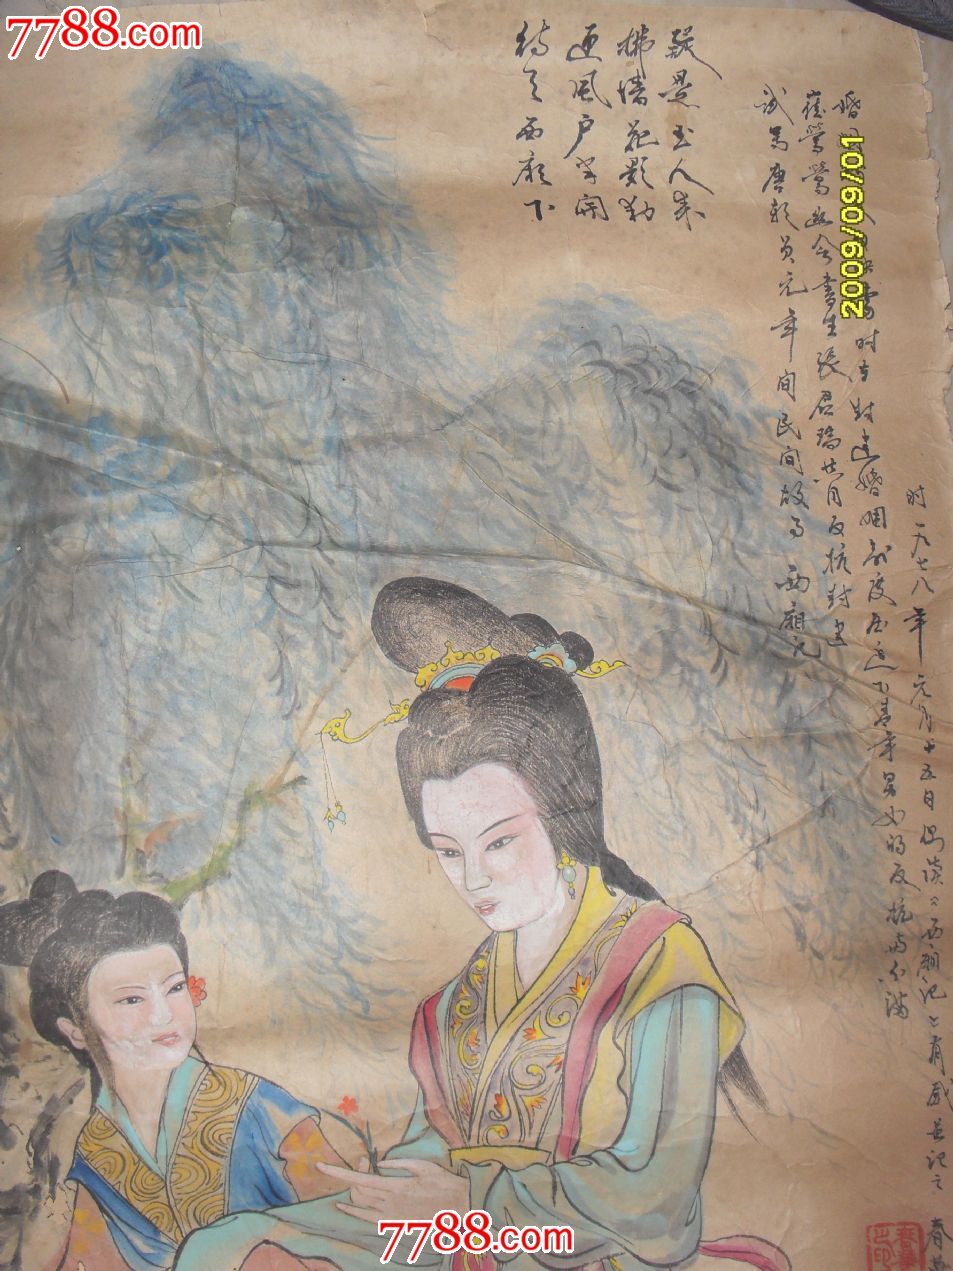 7788.com
待月西厢下
迎风户半开
拂墙花影动
疑是玉人来
唐朝贞元年间民间故事西廂记
崔莺莺幽会书生张君瑞 反抗封建
婚姻 时在封建婚姻制度压迫下青年男女的反抗与不满
时一九七八年元月十五日偶读《西廂记》有感并记之
2009/09/01
7788.com